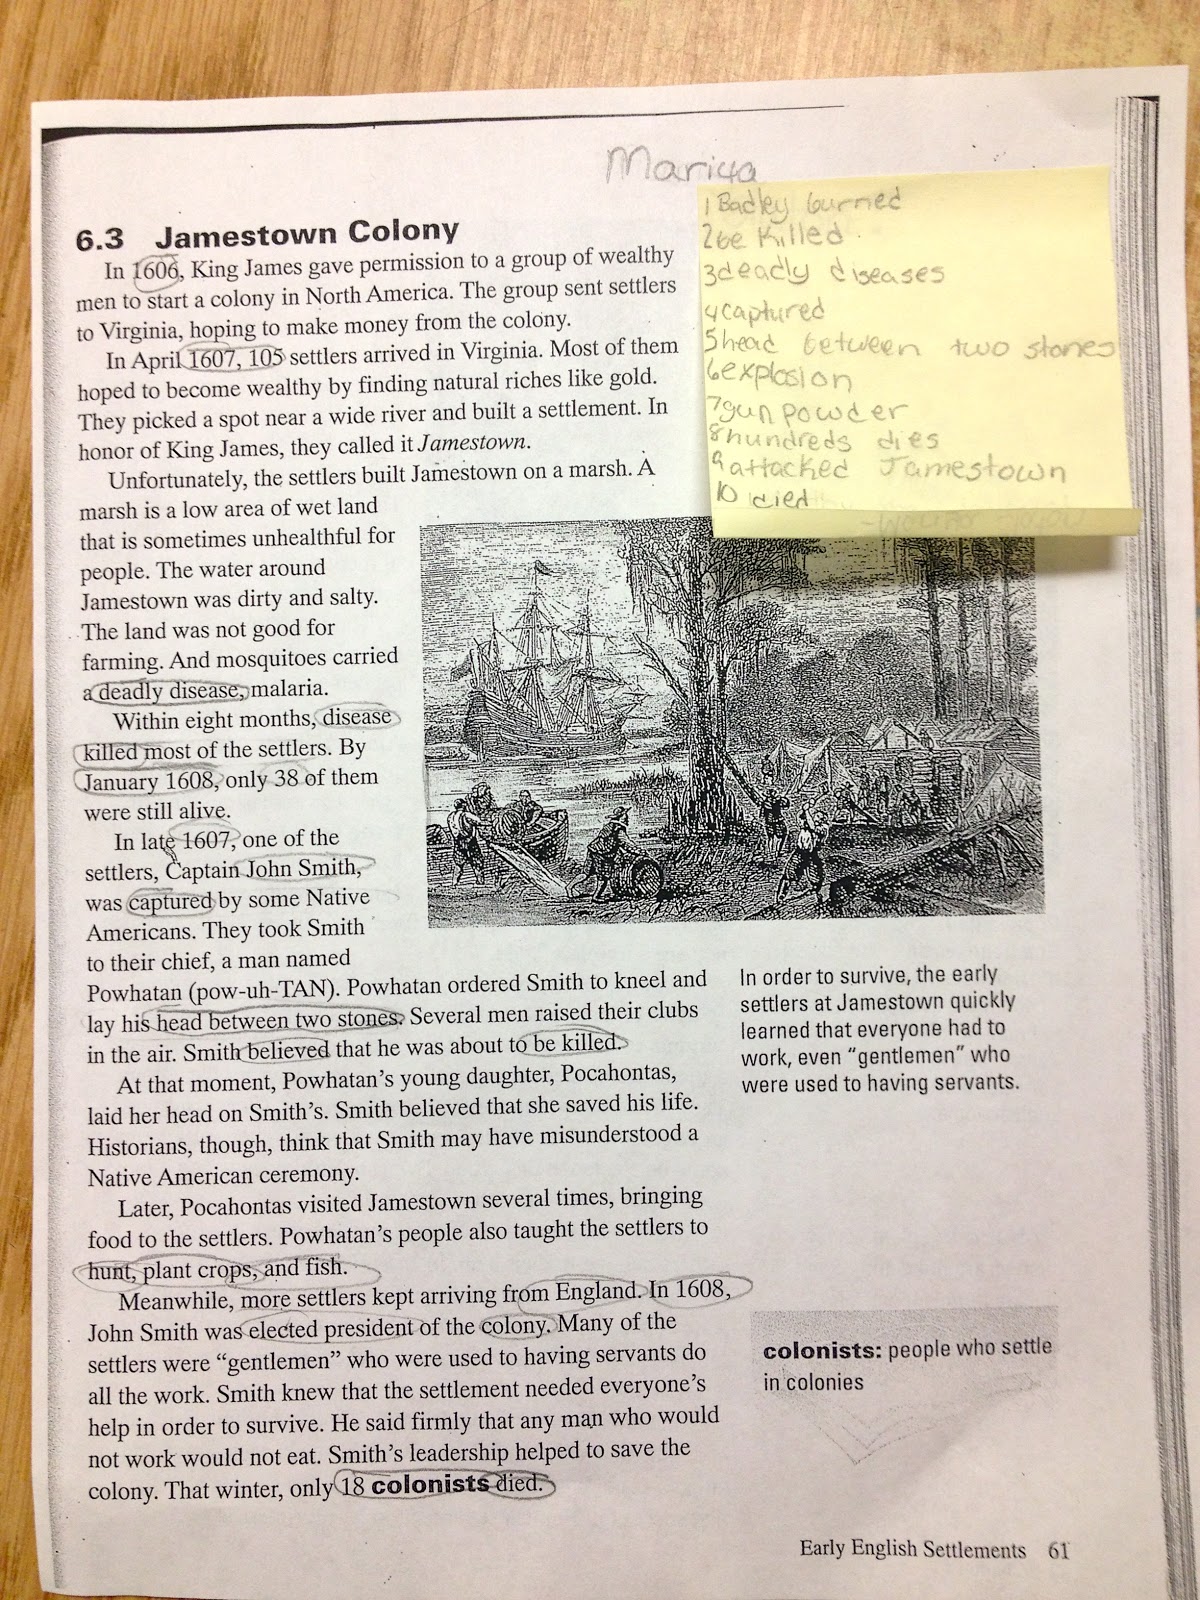 Mariya
1 Badley burned
2 be killed
3 deadly diseases
4 captured
5 head between two stones
6 explosion
7 gun powder
8 hundreds dies
9 attacked Jamestown
10 died
6.3 Jamestown Colony
In 1606, King James gave permission to a group of wealthy
men to start a colony in North America. The group sent settlers
to Virginia, hoping to make money from the colony.
In April 1607, 105 settlers arrived in Virginia. Most of them
hoped to become wealthy by finding natural riches like gold.
They picked a spot near a wide river and built a settlement. In
honor of King James, they called it Jamestown.
Unfortunately, the settlers built Jamestown on a marsh. A
marsh is a low area of wet land
that is sometimes unhealthful for
people. The water around
Jamestown was dirty and salty.
The land was not good for
farming. And mosquitoes carried
a deadly disease, malaria.
Within eight months, disease
killed most of the settlers. By
January 1608, only 38 of them
were still alive.
In late 1607, one of the
settlers, Captain John Smith,
was captured by some Native
Americans. They took Smith
to their chief, a man named
Powhatan (pow-uh-TAN). Powhatan ordered Smith to kneel and
lay his head between two stones. Several men raised their clubs
in the air. Smith believed that he was about to be killed.
At that moment, Powhatan's young daughter, Pocahontas,
laid her head on Smith's. Smith believed that she saved his life.
Historians, though, think that Smith may have misunderstood a
Native American ceremony.
Later, Pocahontas visited Jamestown several times, bringing
food to the settlers. Powhatan's people also taught the settlers to
hunt, plant crops, and fish.
Meanwhile, more settlers kept arriving from England. In 1608,
John Smith was elected president of the colony. Many of the
settlers were “gentlemen” who were used to having servants do
all the work. Smith knew that the settlement needed everyone's
help in order to survive. He said firmly that any man who would
not work would not eat. Smith's leadership helped to save the
colony. That winter, only 18 colonists died.
In order to survive, the early
settlers at Jamestown quickly
learned that everyone had to
work, even “gentlemen” who
were used to having servants.
colonists: people who settle
in colonies
Early English Settlements 61